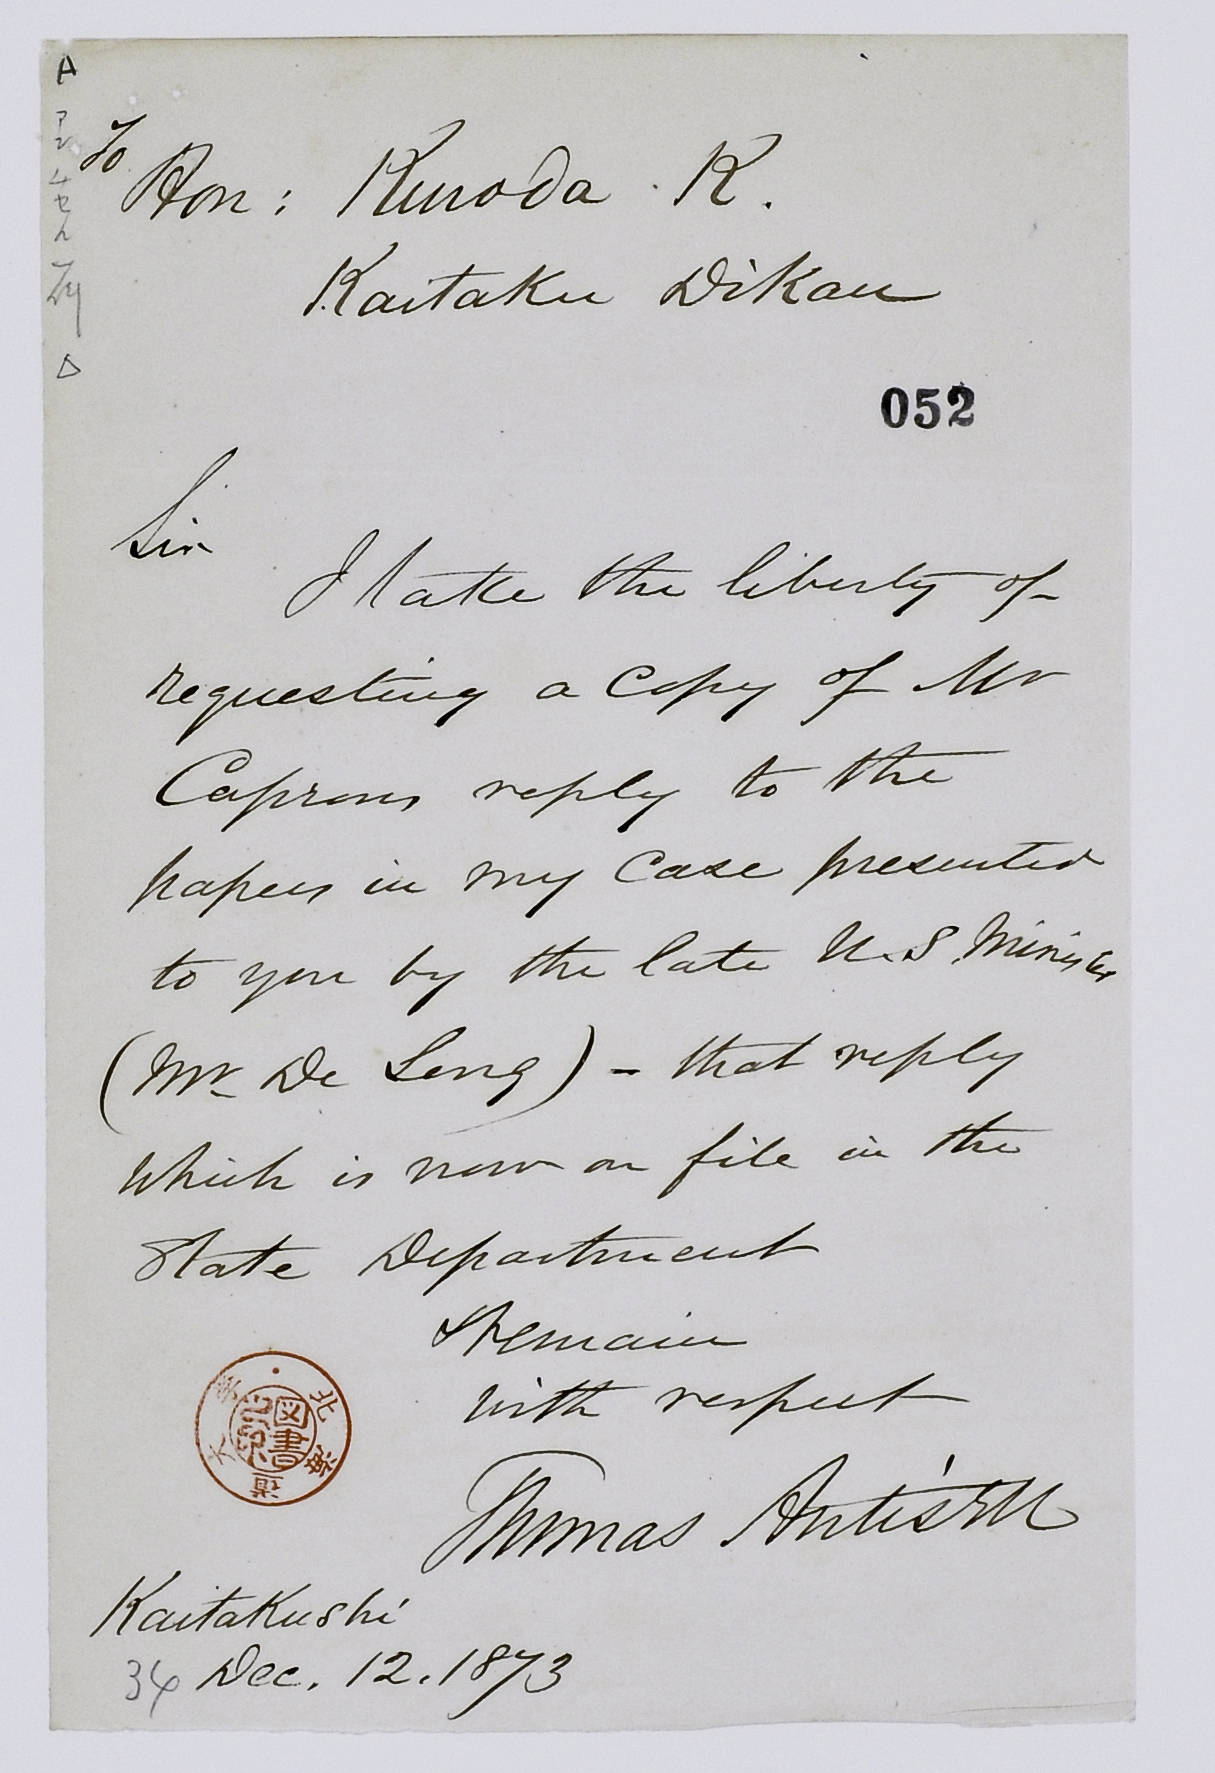 To
Hon: Kuroda K.
Kaitaku Dikan
052
Sir
I take the liberty of
requesting a copy of Mr
Caprons reply to the
papers in my case presented
to you by the late U.S. Minister
(Mr De Long) - that reply
which is now on file in the
State Department
I remain
with respect
Thomas Antisell
Kaitakushi
34 Dec. 12. 1873
A
北海道大学
図書